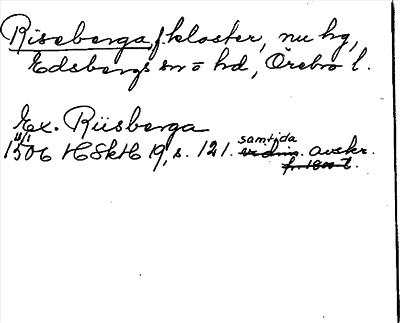 Riseberga, f. kloster, nu hg,
Edsbergs sn o hd, Örebro l.
Ex. Riisberga
11/1
1506 HSkH 19, s. 121. samtida avskr.